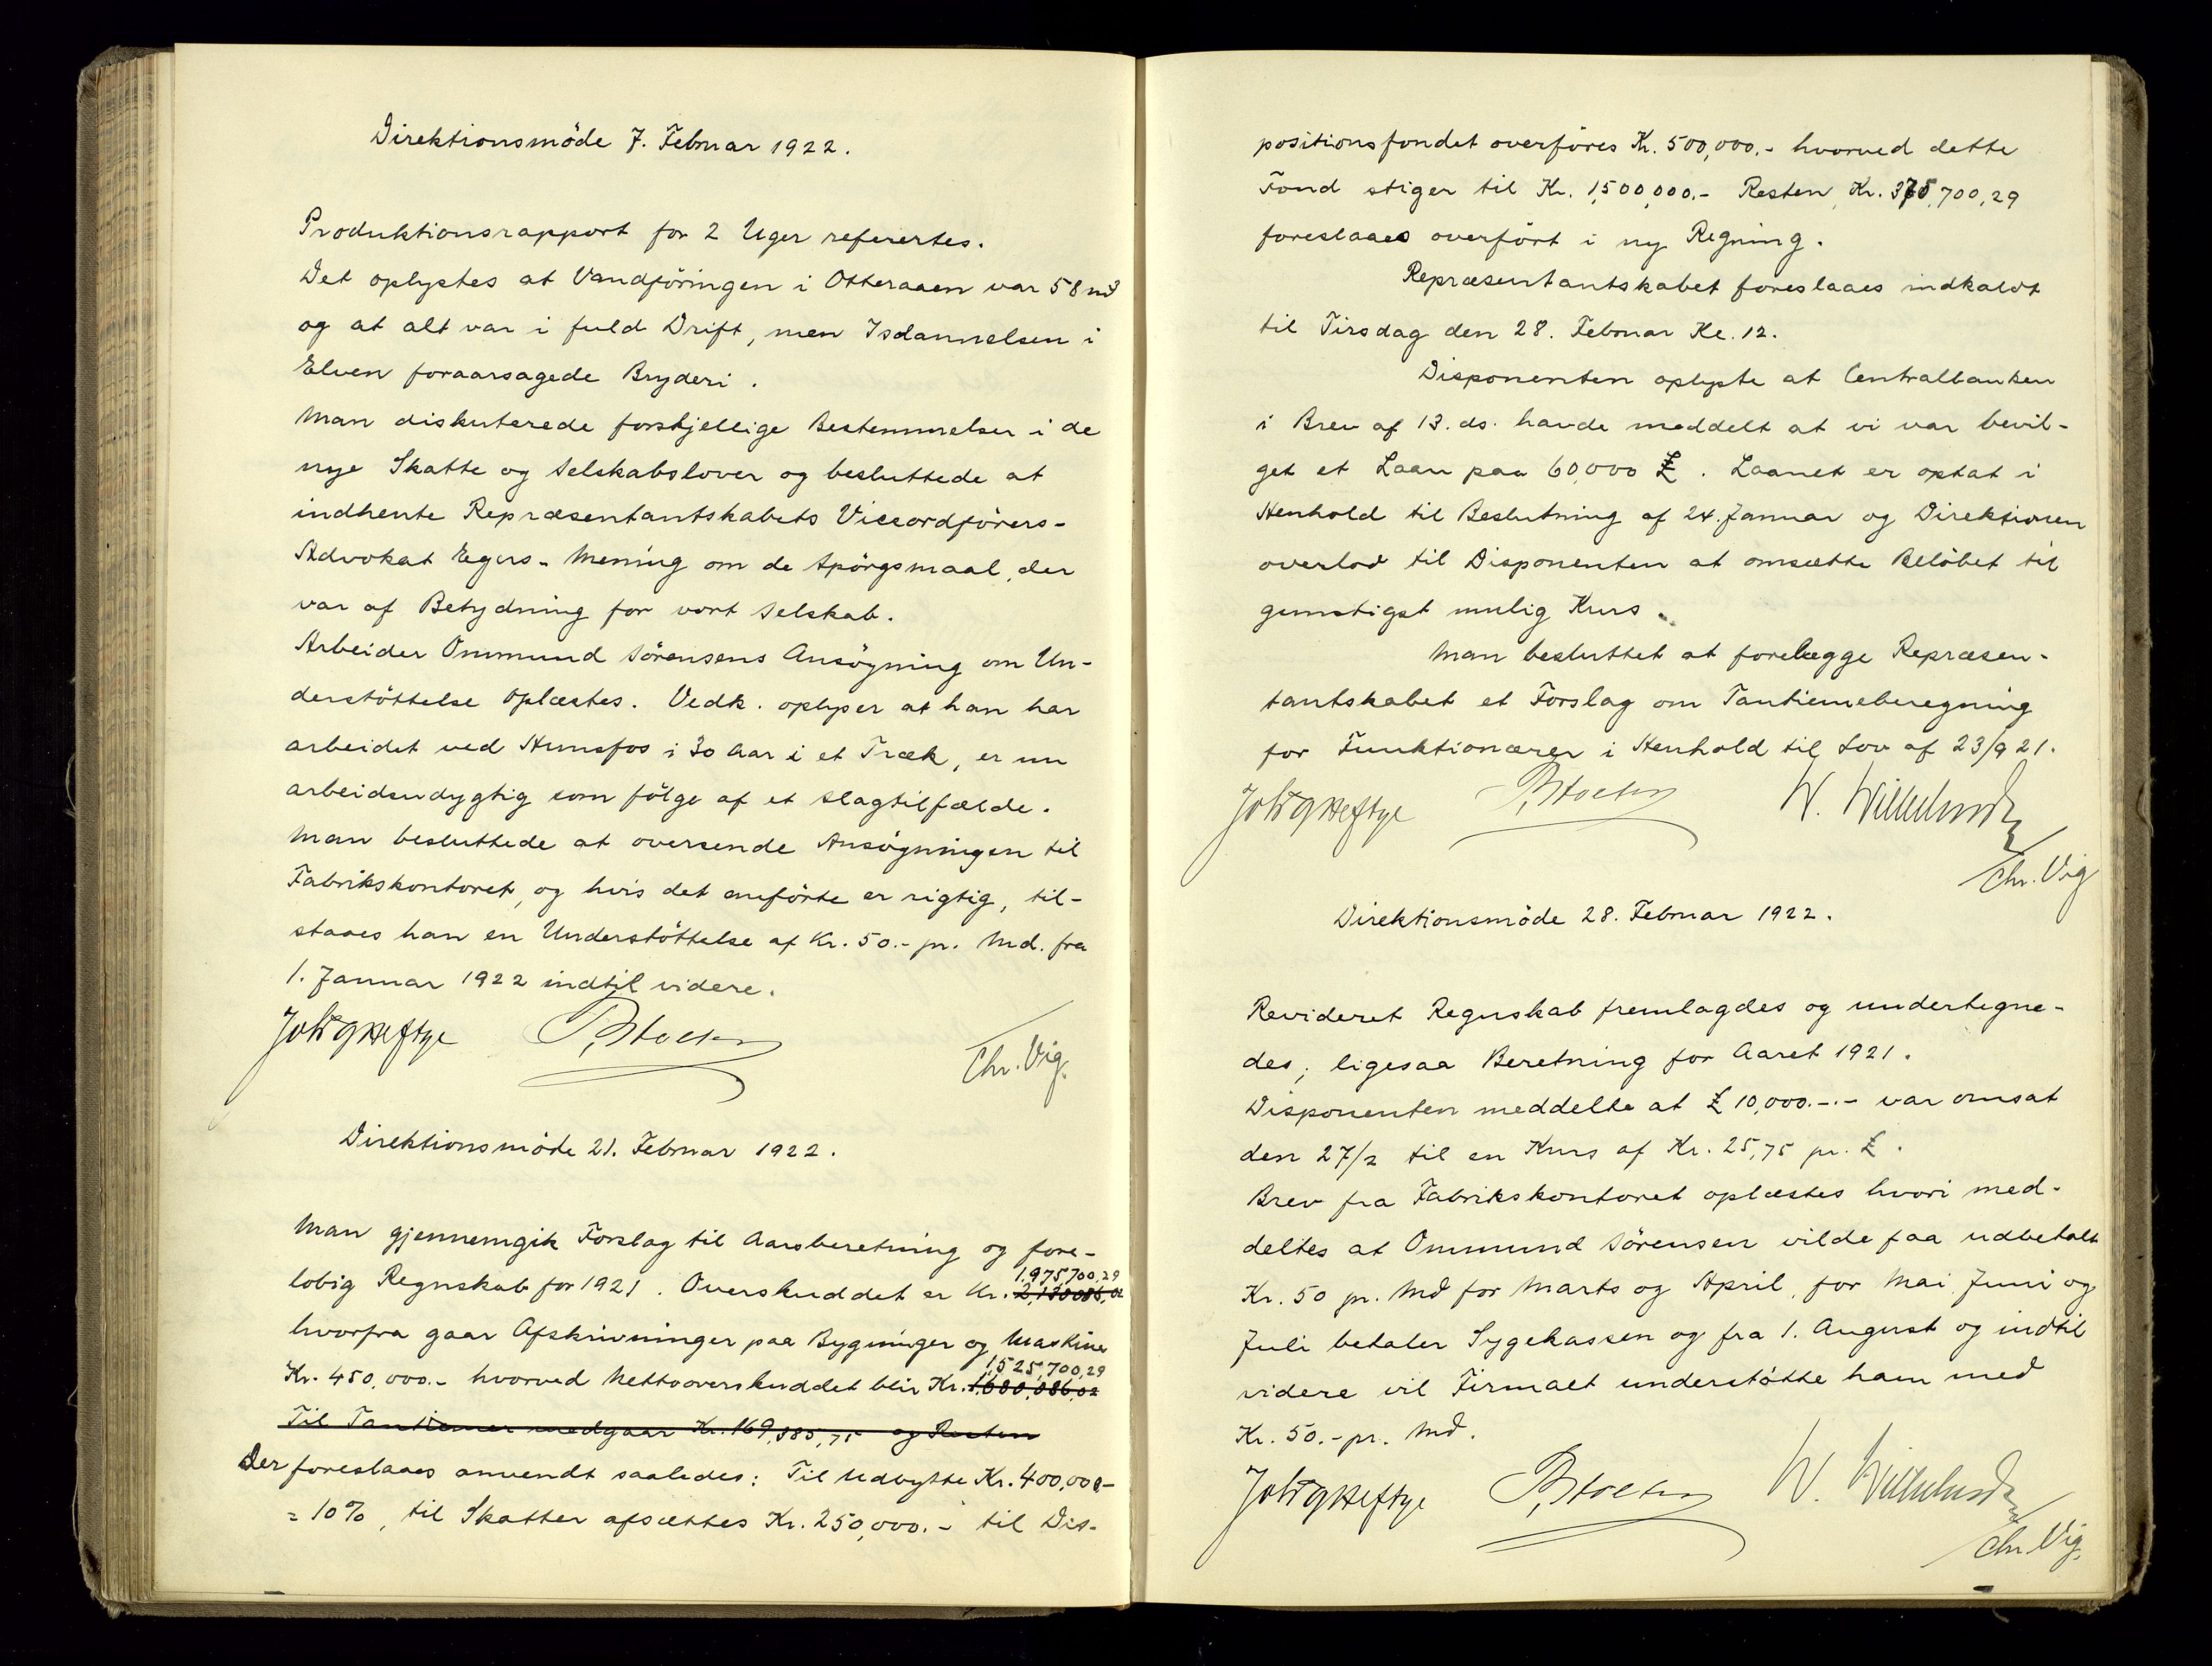 Direktionsmöde 7. Februar 1922.
Produktionsrapport for 2 Uger referertes.
Det oplystes at Vandföringen i Otteraaen var 58 m3
og at alt var i fuld Drift, men Isdannelsen i
Elven foraarsagede Bryderi.
Man diskuterede forskjellige Bestemmelser i de
nye Skatte og Selskabslover og besluttede at
indhente Repræsentantskabets Viceordförers-
Advokat Egers - Mening om de Spörgsmaal, der
var af Betydning for vort Selskab.
Arbeider Ommund Sörensens Ansögning om Un-
derstöttelse oplæstes. Vedk. oplyser at han har
arbeidet ved Hunsfos i 30 Aar i et Træk, er nu
arbeidsudygtig som fölge af et Slagtilfælde.
Man besluttede at oversende Ansögningen til
Fabrikskontoret, og hvis det anförte er rigtig, til-
staaes han en Understöttelse af Kr. 50.- pr. Md. fra
1. Januar 1922 indtil videre.
Joh T Heftye Chr. Vig.
Direktionsmöde 21. Februar 1922.
Man gjennemgik Forslag til Aarsberetning og fore-
1,975,700,29
lobig Regnskab for 1921. Overskuddet er Kr. 2,130,086,02
hvorfra gaar Afskrivninger paa Bygninger og Maskiner
1,525,700,29
Kr. 450,000.- hvorved Nettooverskuddet blir Kr. 1,680,086,02
Til Tantiemer medgaar Kr. 169,385,75 og Resten
Der foreslaaes anvendt saaledes: Til Udbytte Kr. 400,000-
= 10%, til Skatter afsættes Kr. 250,000.- til Dis-
positionsfondet overföres Kr. 500,000.- hvorved dette
Fond stiger til Kr. 1,500,000.- Resten, Kr. 375,700,29
foreslaaes overfört i ny Regning.
Repræsentantskabet foreslaaes indkaldt
til Tirsdag den 28. Februar Kl. 12.
Disponenten oplyste at Centralbanken
i Brev af 13. ds. havde meddelt at vi var bevil-
get et Laan paa 60,000 £. Laanet er optat i
Henhold til Beslutning af 24. Januar og Direktionen
overlod til Disponenten at omsætte Belöbet til
gunstigst mulig Kurs.
Man besluttet at forelægge Repræsen-
tantskabet et Forslag om Tantiemeberegning
for Funktionærer i Henhold til Lov af 23/9 21.
Joh T Heftye
Chr. Vig
Direktionsmöde 28. Februar 1922.
Revideret Regnskab fremlagdes og undertegne-
des; ligesaa Beretning for Aaret 1921.
Disponenten meddelte at £ 10,000.-.- var omsat
den 27/2 til en Kurs af Kr. 25,75 pr. £.
Brev fra Fabrikskontoret oplæstes hvori med-
deltes at Ommund Sörensen vilde faa udbetalt
Kr. 50 pr. Md for Marts og April, for Mai, Juni og
Juli betaler Sygekassen og fra 1. August og indtil
videre vil Firmaet understøtte ham med
Kr. 50.- pr. Md.
Joh T Heftye
Chr. Vig.